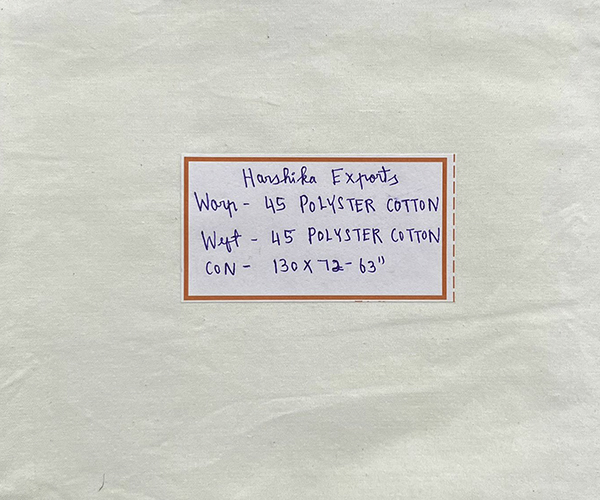 Harshika Exports
Warp - 45 POLYSTER COTTON
Weft - 45 POLYSTER COTTON
CON - 130 X 72 - 63"